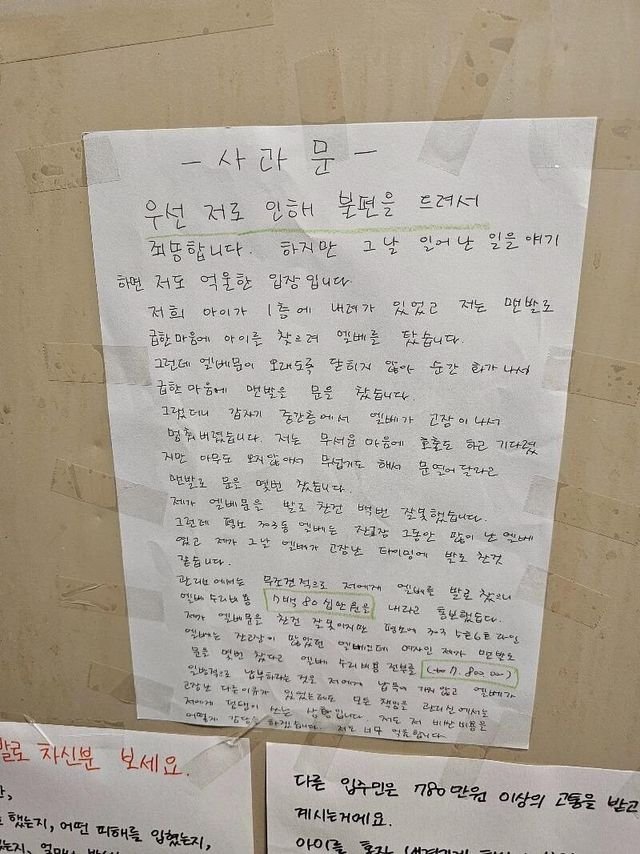 - 사 과 문 -
우선 저로 인해 불편을 드려서
죄송합니다. 하지만 그날 일어난 일을 얘기
하면 저도 억울한 입장입니다
저희 아이가 1층에 내려가 있었고 저는 맨발로
급한마음에 아이를 찾으려 엘베를 탔습니다.
그런데 엘베문이 오래도록 닫히지 않아 순간 화가 나서
급한 마음에 맨발을 문을 찼습니다.
그랬더니 갑자기 중간층에서 엘베가 고장이 나서
멈춰버렸습니다. 저는 무서운 마음에 호출도 하고 기다렸
지만 아무도 오지않아서 무섭기도 해서 문열어달라고
맨발로 문을 몇번 찼습니다.
제가 엘베문을 발로 찬건 백번 잘못했습니다.
그런데 평소 303동 엘베는 잔고장 그동안 많이 난 엘베
였고 제가 그날 엘베가 고장난 타이밍에 발로 찬것
같습니다.
관리소에서는 무조건적으로 저에게 엘베를 발로 찼으니
엘베 수리비용 7백 80 십만원을 내라고 통보했습니다.
제가 엘베문을 찬건 잘못이지만 평소에 303 5호6호 라인
엘베는 잔고장이 많았던 엘베인데 여자인 제가 맨발로
문을 몇번 찼다고 엘베 수리비용 전부를 (7.800.000)
일방적으로 납부하라는 것은 저에게 납득이 가지 않고 엘베가
고장난 다른이유가 있었는데도 모든 책임을 관리소에서는
저에게 덤탱이 쓰는 상황입니다. 저도 저 비싼비용을
어떻게 감당을 하겠습니까. 저도 너무 억울합니다.
발로 차신분 보세요.
했는지, 어떤 피해를 입혔는지,
다른 입주민은 780만원 이상의 고통을 받고
계시는거에요.
아이를 혼자